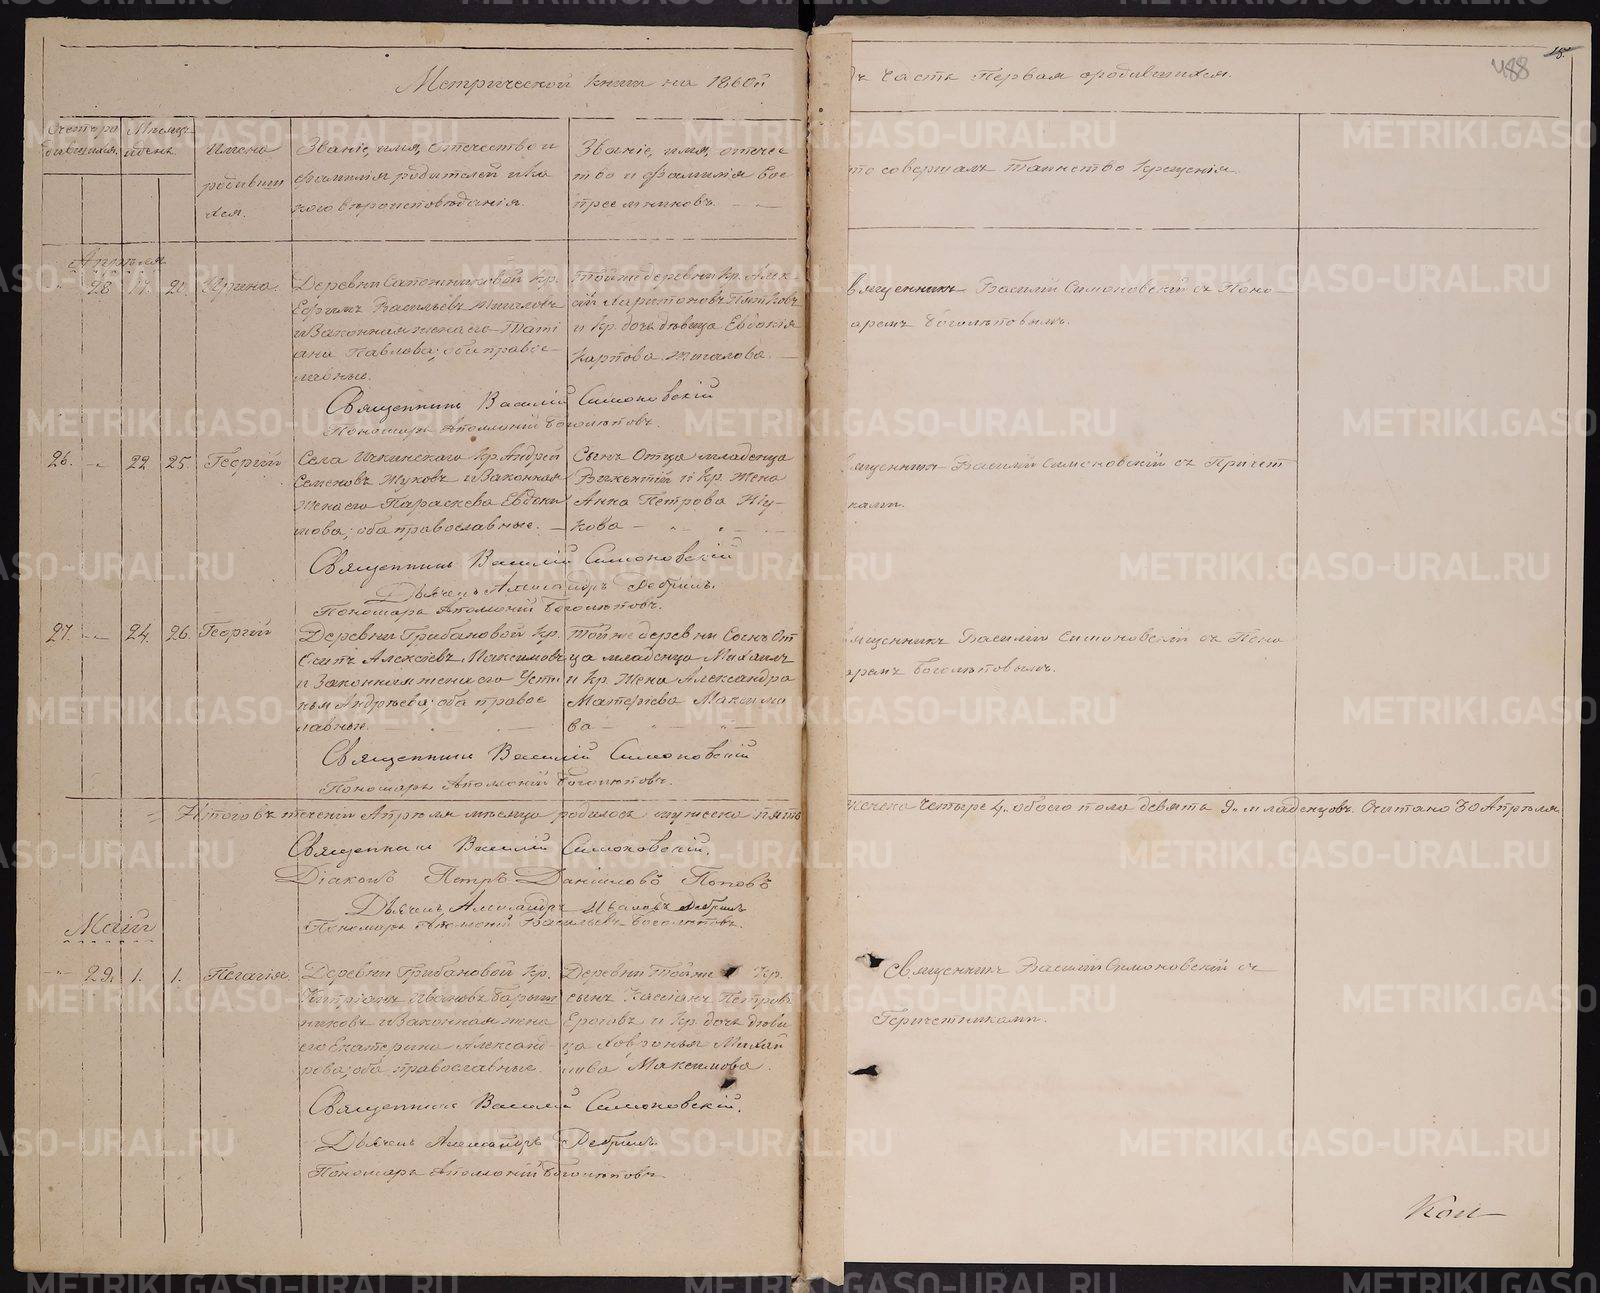 Метрической книги на 1860й
Счетъ ро
дившихся.
Мѣсяцъ
и день
Имена
родивши
хся.
Званіе, имя, отчество и
фамилія родителей и ка
кого вѣроисповѣданія.
Званіе, имя, отчес
тво и фамилія вос
пріемниковъ.
Апрѣля
28 17. 20. Ирина.
Деревни Сапожниковой кр.
Ефримъ Васильевъ Жигаловъ
и Законная жена его Тати
ана Павлова; оба правос-
лавные.
Той же деревни кр. Алек
сѣй Харитоновъ Пятковъ
и Кр. дочь дѣвица Евдокія
Карпова Жигалова.
Священникъ Василій Симоновскій
Пономарь Аполоній Боголѣповъ.
26. 22 25. Георгій
Села Ичкинскаго Кр. Андрей
Семеновъ Жуковъ и Законная
Жена его Параскева Евдоки
мова; оба православные.
Сынъ Отца младенца
Викентій и Кр. Жена
Анна Петрова Жу-
кова
Священникъ Василій Симоновскій
Дьячекъ Александръ
Пономарь Аполоній Боголѣповъ.
27. 24. 26. Георгій
Деревни Грибановой Кр.
Алексѣевъ Максимовъ
и Законная жена его Усти
нья Андрѣева; оба правос
лавные.
Той же деревни Сынъ От
ца младенца Михаилъ
и Кр. Жена Александра
Матфѣева Максимо
ва
Священникъ Василій Симоновскій
Пономарь Аполоній Боголѣповъ.
Итого въ теченіи Апрѣля мѣсяца родилось мужеска пять
Священникъ Василій Симоновскій.
Діаконъ Петръ Даніиловъ Поповъ
Дьячекъ Александръ Ивановъ
Пономарь Аполоній Васильевъ Боголѣповъ.
Маій
29. 1. 1. Пелагія.
Деревни Грибановой Кр.
Кипріанъ Ивановъ Барыш
никовъ и Законная жена
его Екатерина Александ-
рова; оба православные.
Деревни Той же Кр.
сынъ Кассіанъ Петровъ
и Кр. дочь дѣви
ца Хавронья Михай
лова Максимова.
Священникъ Василій Симоновскій.
Дьячекъ Александръ
Пономарь Аполоній Боголѣповъ.
488
Часть Первая о родившихся.
то совершалъ Таинство Крещенія.
вященникъ Василій Симоновскій съ Поно
аремъ Боголѣповымъ.
ященникъ Василій Симоновскій съ Причет
ками.
ященникъ Василій Симоновскій съ Поно
аремъ Боголѣповымъ.
женска Четыре 4. обоего пола девять 9. младенцовъ. Считано въ Апрѣля.
Священникъ Василій Симоновскій съ
Причетниками.
Кол
METRIKI.GASO-URAL.RU